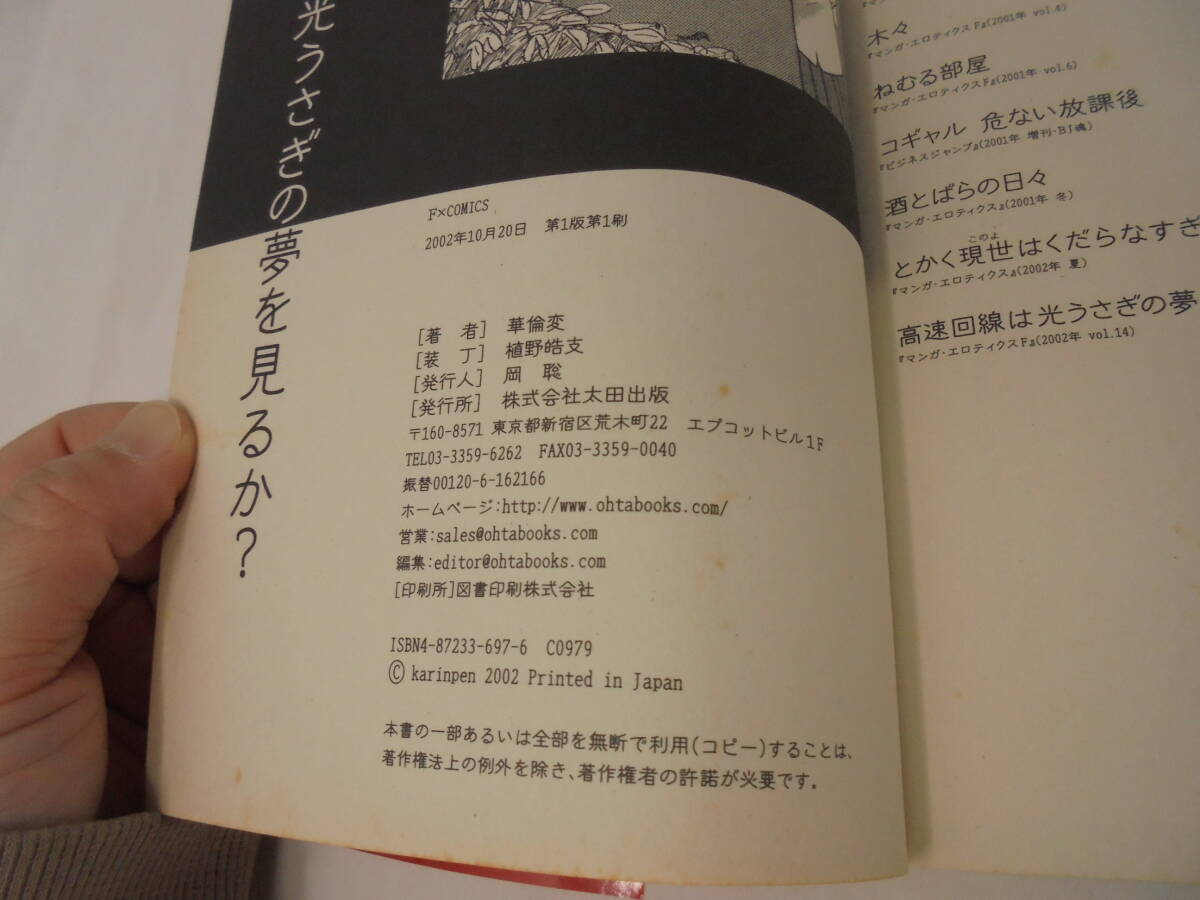 光うさぎの夢を見るか？
F×COMICS
2002年10月20日　第1版第1刷
[著　者]　華倫変
[装　丁]　植野皓支
[発行人]　岡　聡
[発行所]　株式会社太田出版
〒160-8571 東京都新宿区荒木町22　エプコットビル1F
TEL03-3359-6262 FAX03-3359-0040
振替00120-6-162166
ホームページ:http://www.ohtabooks.com/
営業:sales@ohtabooks.com
編集:editor@ohtabooks.com
[印刷所]図書印刷株式会社
ISBN4-87233-697-6 C0979
©karinpen 2002 Printed in Japan
本書の一部あるいは全部を無断で利用(コピー)することは、
著作権法上の例外を除き、著作権者の許諾が必要です。
木々
『マンガ・エロティクスF』(2001年 vol.4)
ねむる部屋
『マンガ・エロティクスF』(2001年 vol.6)
コギャル 危ない放課後
『ビジネスジャンプ』(2001年 増刊・BJ魂)
酒とばらの日々
『マンガ・エロティクス』(2001年 冬)
このよ
とかく現世はくだらなすぎ
『マンガ・エロティクス』(2002年 夏)
高速回線は光うさぎの夢
『マンガ・エロティクスF』(2002年 vol.14)